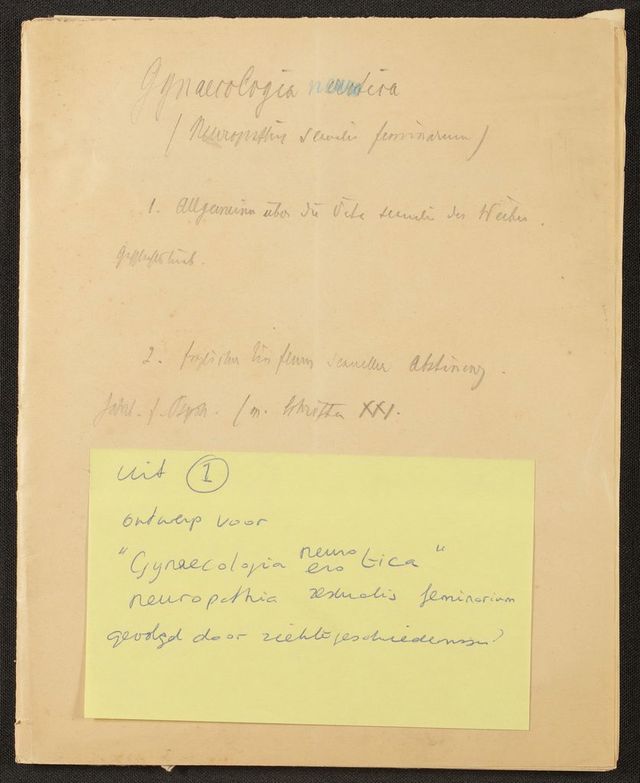 Gynaecologia neurotica
(Neuropathia sexualis feminarum)
1. Allgemeines über die Vita sexualis des Weibes.
Geschlechtstrieb.
2. sexueller Abstinenz.
Jahrb. f. Psych. Schriften XXI.
uit 1
ontwerp voor
"Gynaecologia neuro
erotica"
neuropathia sexualis feminarum
gevolgd door ziektegeschiedenissen?